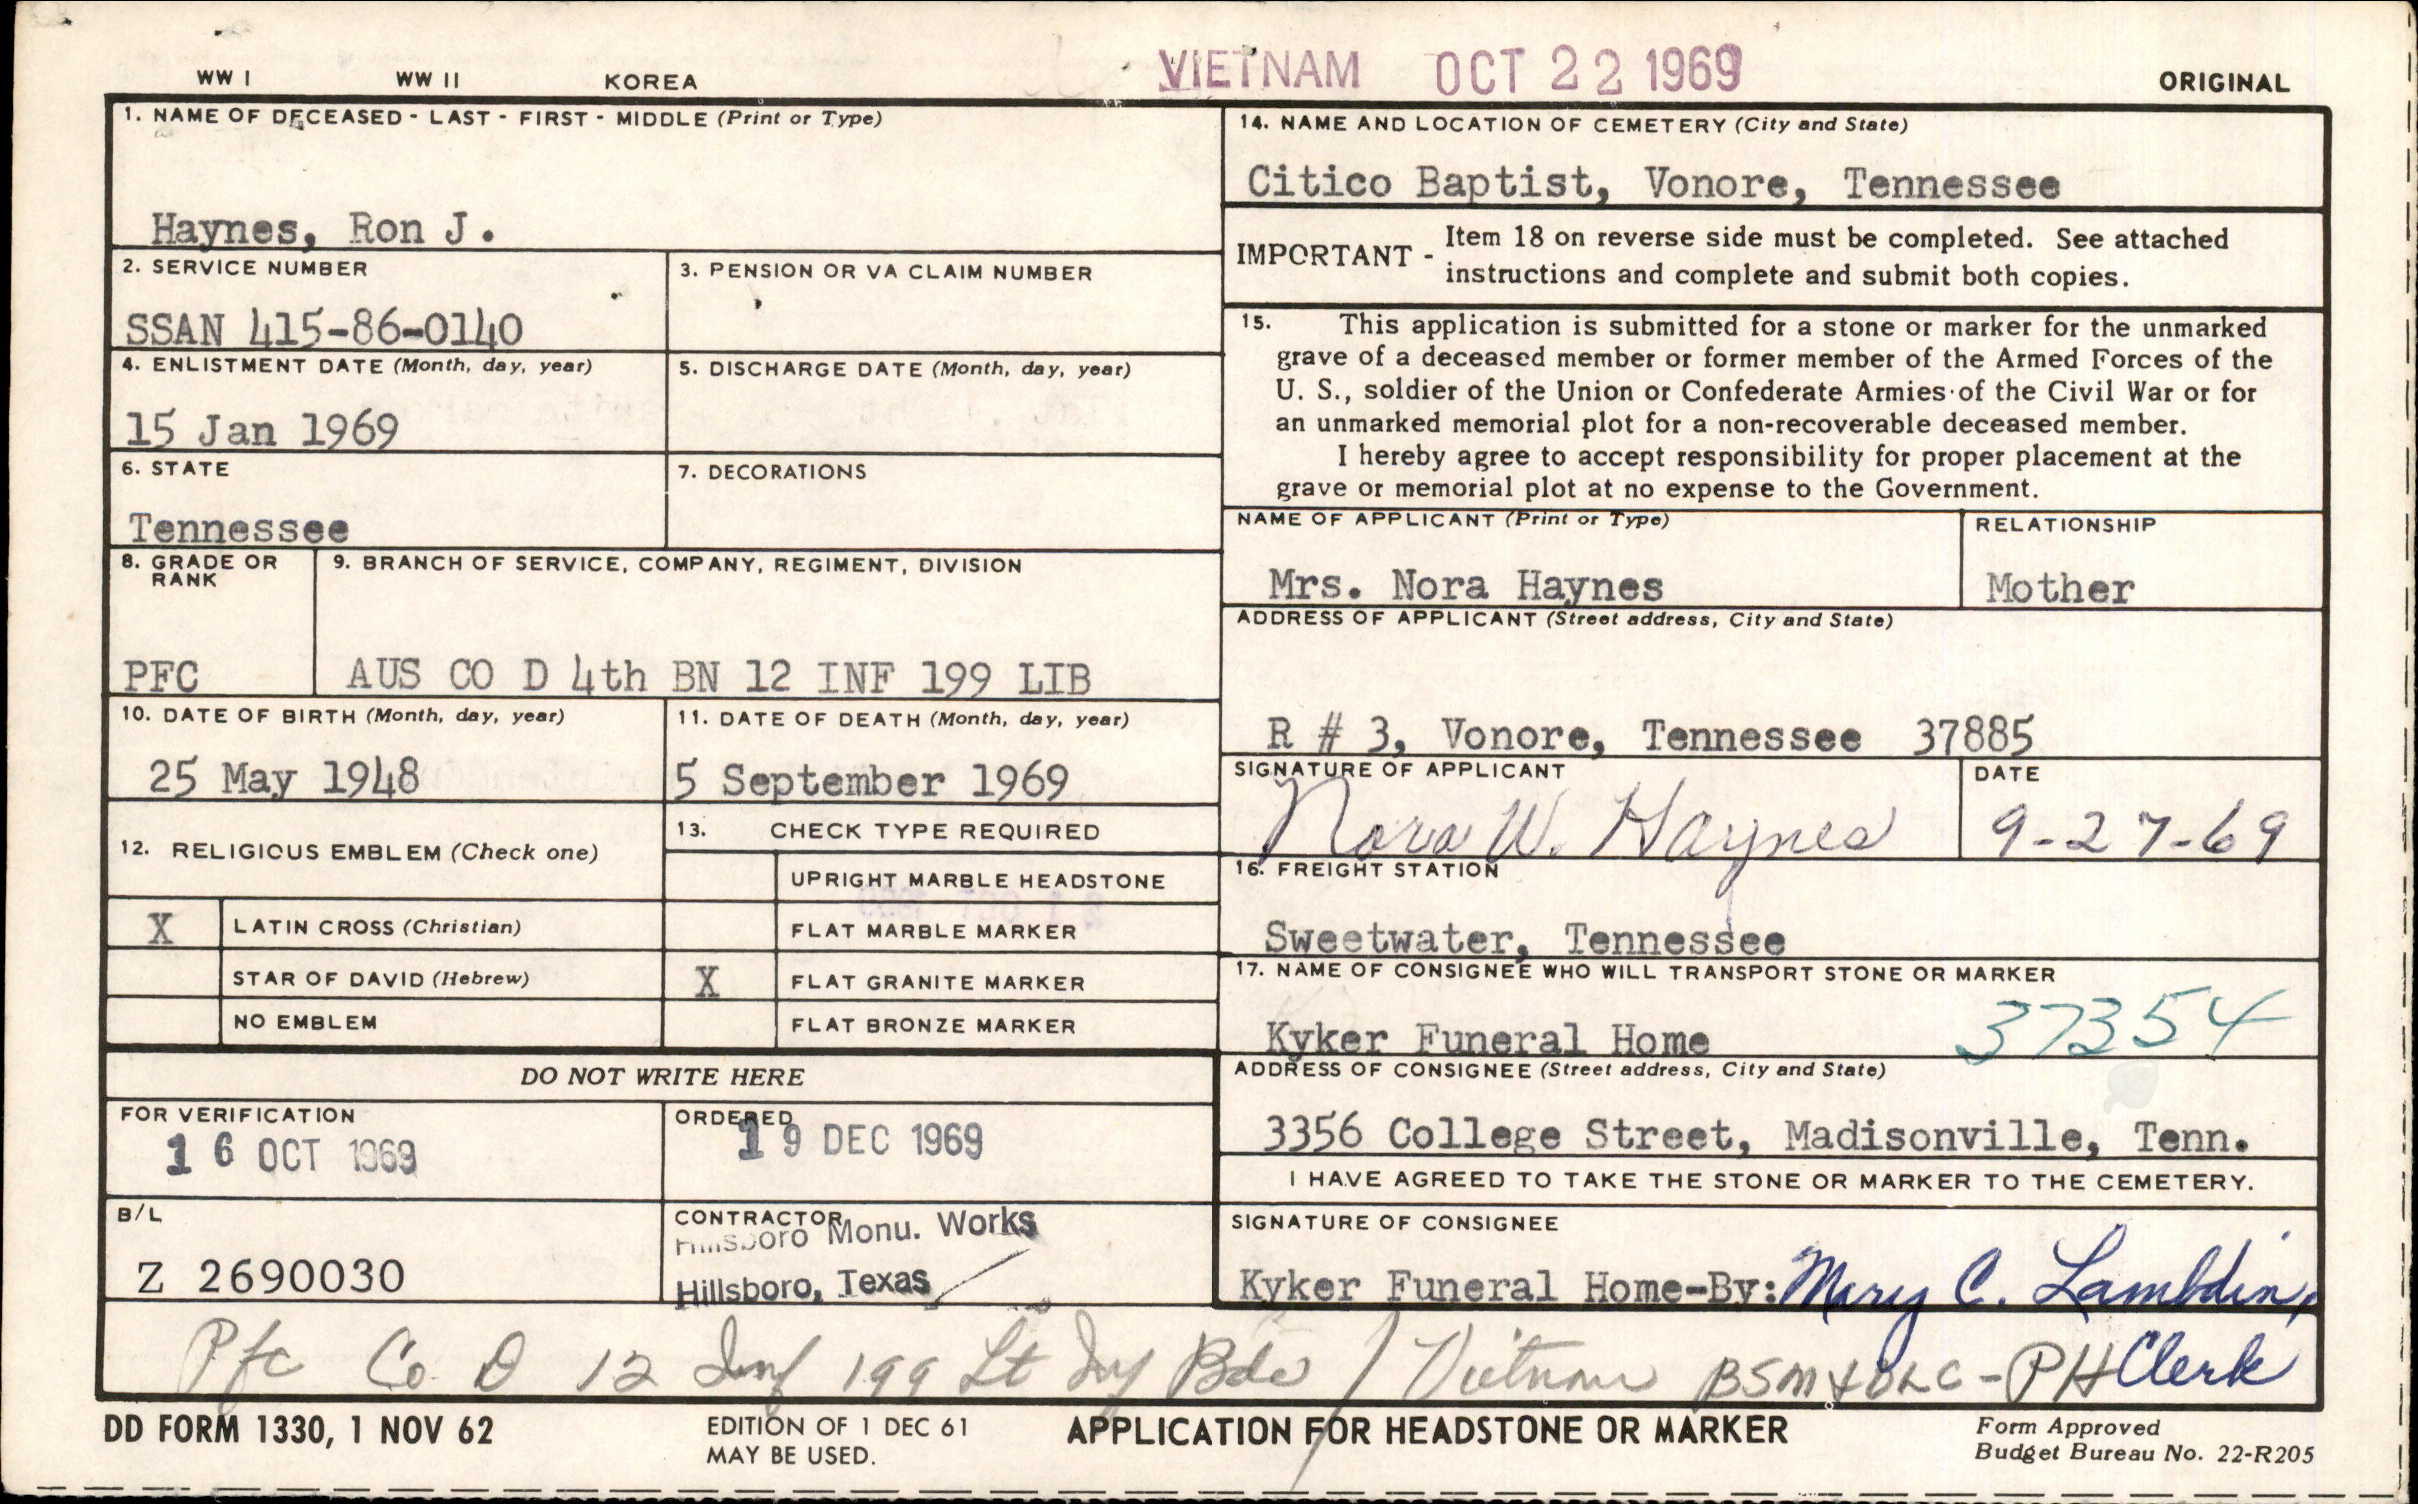 WW I WW II KOREA VIETNAM OCT 22 1969 ORIGINAL
1. NAME OF DECEASED - LAST - FIRST - MIDDLE (Print or Type)
Haynes, Ron J.
2. SERVICE NUMBER
SSAN 415-86-0140
3. PENSION OR VA CLAIM NUMBER
4. ENLISTMENT DATE (Month, day, year)
15 Jan 1969
5. DISCHARGE DATE (Month, day, year)
6. STATE
Tennessee
7. DECORATIONS
8. GRADE OR
RANK
PFC
9. BRANCH OF SERVICE, COMPANY, REGIMENT, DIVISION
AUS CO D 4th BN 12 INF 199 LIB
10. DATE OF BIRTH (Month, day, year)
25 May 1948
11. DATE OF DEATH (Month, day, year)
5 September 1969
12. RELIGIOUS EMBLEM (Check one)
X LATIN CROSS (Christian)
STAR OF DAVID (Hebrew)
NO EMBLEM
13. CHECK TYPE REQUIRED
UPRIGHT MARBLE HEADSTONE
FLAT MARBLE MARKER
X FLAT GRANITE MARKER
FLAT BRONZE MARKER
DO NOT WRITE HERE
FOR VERIFICATION
16 OCT 1969
ORDERED
19 DEC 1969
B/L
Z 2690030
CONTRACTOR
Hillsboro Monu. Works
Hillsboro, Texas
14. NAME AND LOCATION OF CEMETERY (City and State)
Citico Baptist, Vonore, Tennessee
IMPORTANT - Item 18 on reverse side must be completed. See attached
instructions and complete and submit both copies.
15. This application is submitted for a stone or marker for the unmarked
grave of a deceased member or former member of the Armed Forces of the
U. S., soldier of the Union or Confederate Armies of the Civil War or for
an unmarked memorial plot for a non-recoverable deceased member.
I hereby agree to accept responsibility for proper placement at the
grave or memorial plot at no expense to the Government.
NAME OF APPLICANT (Print or Type)
Mrs. Nora Haynes
RELATIONSHIP
Mother
ADDRESS OF APPLICANT (Street address, City and State)
R # 3, Vonore, Tennessee 37885
SIGNATURE OF APPLICANT
Nora W. Haynes
DATE
9-27-69
16. FREIGHT STATION
Sweetwater, Tennessee
17. NAME OF CONSIGNEE WHO WILL TRANSPORT STONE OR MARKER
Kyker Funeral Home 37354
ADDRESS OF CONSIGNEE (Street address, City and State)
3356 College Street, Madisonville, Tenn.
I HAVE AGREED TO TAKE THE STONE OR MARKER TO THE CEMETERY.
SIGNATURE OF CONSIGNEE
Kyker Funeral Home-By: Mary C. Lambdin,
Clerk
Pfc Co D 12 Inf 199 Lt Inf Bde / Vietnam BSM & OLC - PH
DD FORM 1330, 1 NOV 62
EDITION OF 1 DEC 61
MAY BE USED.
APPLICATION FOR HEADSTONE OR MARKER
Form Approved
Budget Bureau No. 22-R205